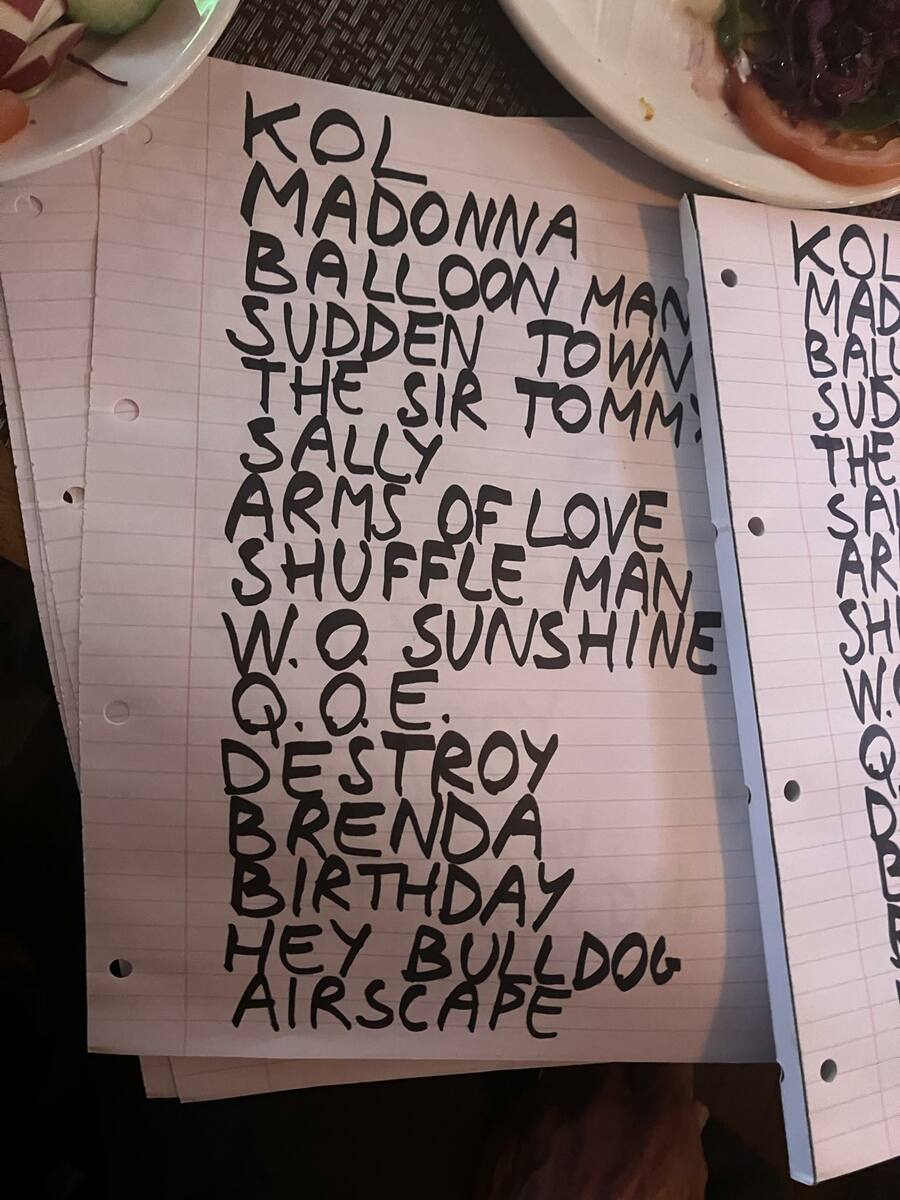 KOL
MADONNA
BALLOON MAN
SUDDEN TOWN
THE SIR TOMMY
SALLY
ARMS OF LOVE
SHUFFLE MAN
W.O. SUNSHINE
Q.O.E.
DESTROY
BRENDA
BIRTHDAY
HEY BULLDOG
AIRSCAPE
KOL
MAD
BALL
SUD
THE
SAL
AR
SH
W.
Q
D
B